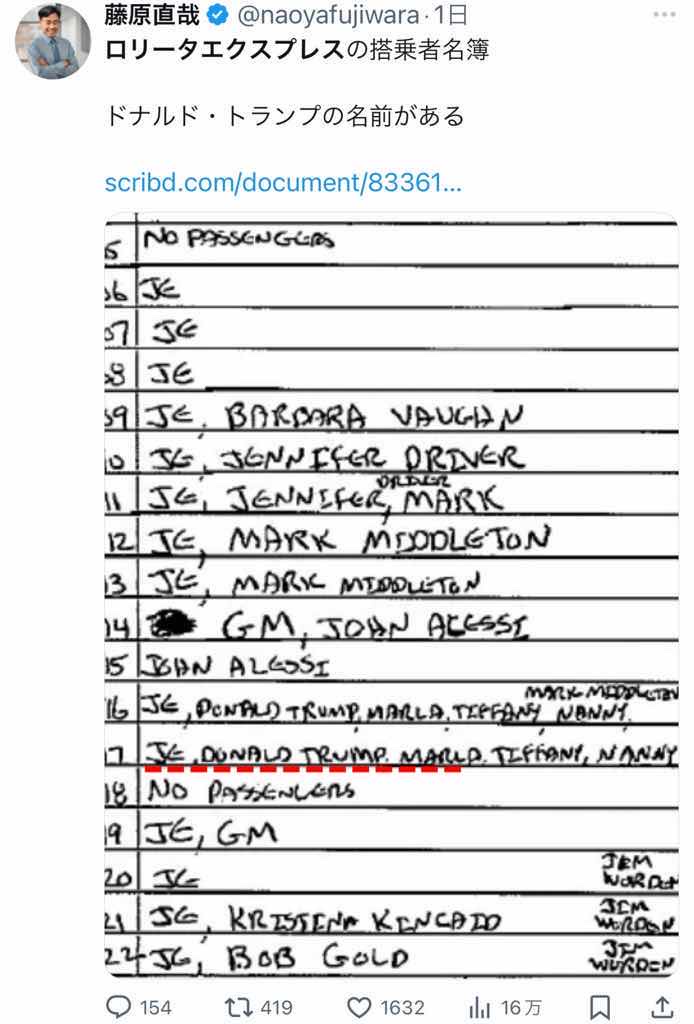 藤原直哉 @naoyafujiwara · 1日
ロリータエクスプレスの搭乗者名簿
ドナルド・トランプの名前がある
scribd.com/document/83361...
5 NO PASSENGERS
06 JE
07 JE
08 JE
09 JE, BARBARA VAUGHN
10 JE, JENNIFER DRIVER
DRIVER
11 JE, JENNIFER, MARK
12 JE, MARK MIDDLETON
13 JE, MARK MIDDLETON
14 GM, JOHN ALESSI
15 JOHN ALESSI
MARK MIDDLETON
16 JE, DONALD TRUMP, MARLA, TIFFANY NANNY.
17 JE, DONALD TRUMP, MARLA, TIFFANY, NANNY
18 NO PASSENGERS
19 JE, GM
20 JE JEM WORDEN
21 JE, KRISTINA KINCAID JIM WORDEN
22 JE, BOB GOLD JIM WURDEN
154 419 1632 16万